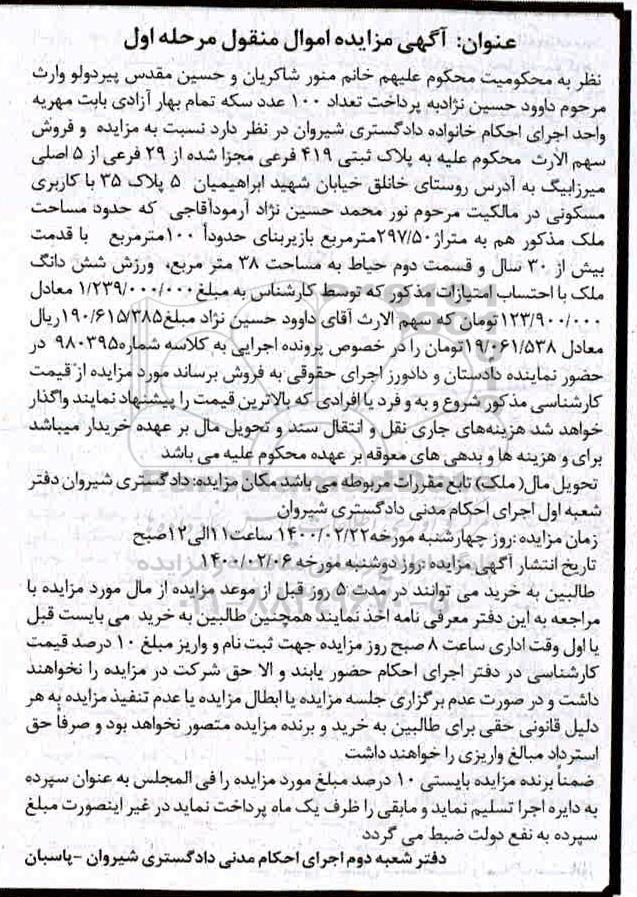 عنوان: آگهی مزایده اموال منقول مرحله اول
نظر به محکومیت محکوم علیهم خانم منور شاکریان و حسین مقدس پیردولو وارث
مرحوم داوود حسین نژادبه پرداخت تعداد ۱۰۰ عدد سکه تمام بهار آزادی بابت مهریه
واحد اجرای احکام خانواده دادگستری شیروان در نظر دارد نسبت به مزایده و فروش
سهم الارث محکوم علیه به پلاک ثبتی ۴۱۹ فرعی مجزا شده از ۲۹ فرعی از ۵ اصلی
میرزابیگ به آدرس روستای خانلق خیابان شهید ابراهیمیان ۵ پلاک ۳۵ با کاربری
مسکونی در مالکیت مرحوم نور محمد حسین نژاد آرمودآقاجی که حدود مساحت
ملک مذکور هم به متراژ۲۹۷/۵۰مترمربع بازیربنای حدوداً ۱۰۰مترمربع با قدمت
بیش از ۳۰ سال و قسمت دوم حیاط به مساحت ۳۸ متر مربع، ورزش شش دانگ
ملک با احتساب امتیازات مذکور که توسط کارشناس به مبلغ ۱/۲۳۹/۰۰۰/۰۰۰ معادل
۱۲۳/۹۰۰/۰۰۰تومان که سهم الارث آقای داوود حسین نژاد مبلغ۱۹۰/۶۱۵/۳۸۵ریال
معادل ۱۹/۰۶۱/۵۳۸تومان را در خصوص پرونده اجرایی به کلاسه شماره۹۸۰۳۹۵ در
حضور نماینده دادستان و دادورز اجرای حقوقی به فروش برساند مورد مزایده از قیمت
کارشناسی مذکور شروع و به و فرد یا افرادی که بالاترین قیمت را پیشنهاد نمایند واگذار
خواهد شد هزینه‌های جاری نقل و انتقال سند و تحویل مال بر عهده خریدار میباشد
برای و هزینه ها و بدهی های معوقه بر عهده محکوم علیه می باشد
تحویل مال( ملک) تابع مقررات مربوطه می باشد مکان مزایده: دادگستری شیروان دفتر
شعبه اول اجرای احکام مدنی دادگستری شیروان
زمان مزایده :روز چهارشنبه مورخه۱۴۰۰/۰۲/۲۲ ساعت۱۱الی۱۲صبح
تاریخ انتشار آگهی مزایده :روز دوشنبه مورخه ۱۴۰۰/۰۲/۰۶
طالبین به خرید می توانند در مدت ۵ روز قبل از موعد مزایده از مال مورد مزایده با
مراجعه به این دفتر معرفی نامه اخذ نمایند همچنین طالبین به خرید می بایست قبل
یا اول وقت اداری ساعت ۸ صبح روز مزایده جهت ثبت نام و واریز مبلغ ۱۰ درصد قیمت
کارشناسی در دفتر اجرای احکام حضور یابند و الا حق شرکت در مزایده را نخواهند
داشت و در صورت عدم برگزاری جلسه مزایده یا ابطال مزایده یا عدم تنفیذ مزایده به هر
دلیل قانونی حقی برای طالبین به خرید و برنده مزایده متصور نخواهد بود و صرفاً حق
استرداد مبالغ واریزی را خواهند داشت
ضمناً برنده مزایده بایستی ۱۰ درصد مبلغ مورد مزایده را فی المجلس به عنوان سپرده
به دایره اجرا تسلیم نماید و مابقی را ظرف یک ماه پرداخت نماید در غیر اینصورت مبلغ
سپرده به نفع دولت ضبط می گردد
دفتر شعبه دوم اجرای احکام مدنی دادگستری شیروان –پاسبان